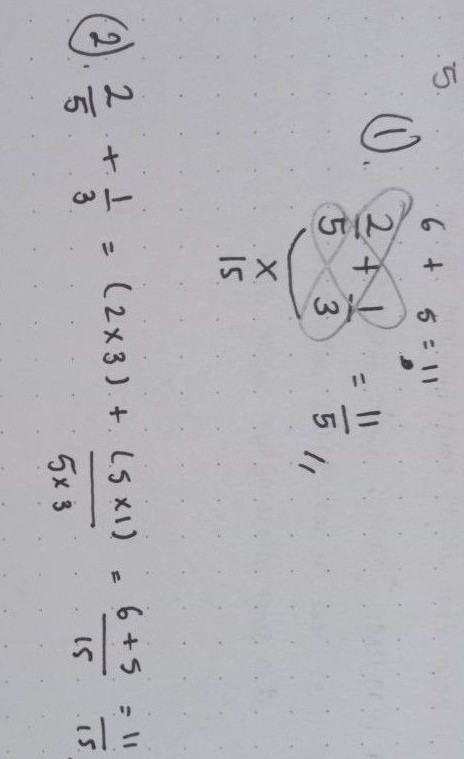 5
①.
6 + 5 = 11
2/5 + 1/3 = 11/5 //
×
15
②. 2/5 + 1/3 = (2×3) + (5×1) / 5×3 = 6+5/15 = 11/15